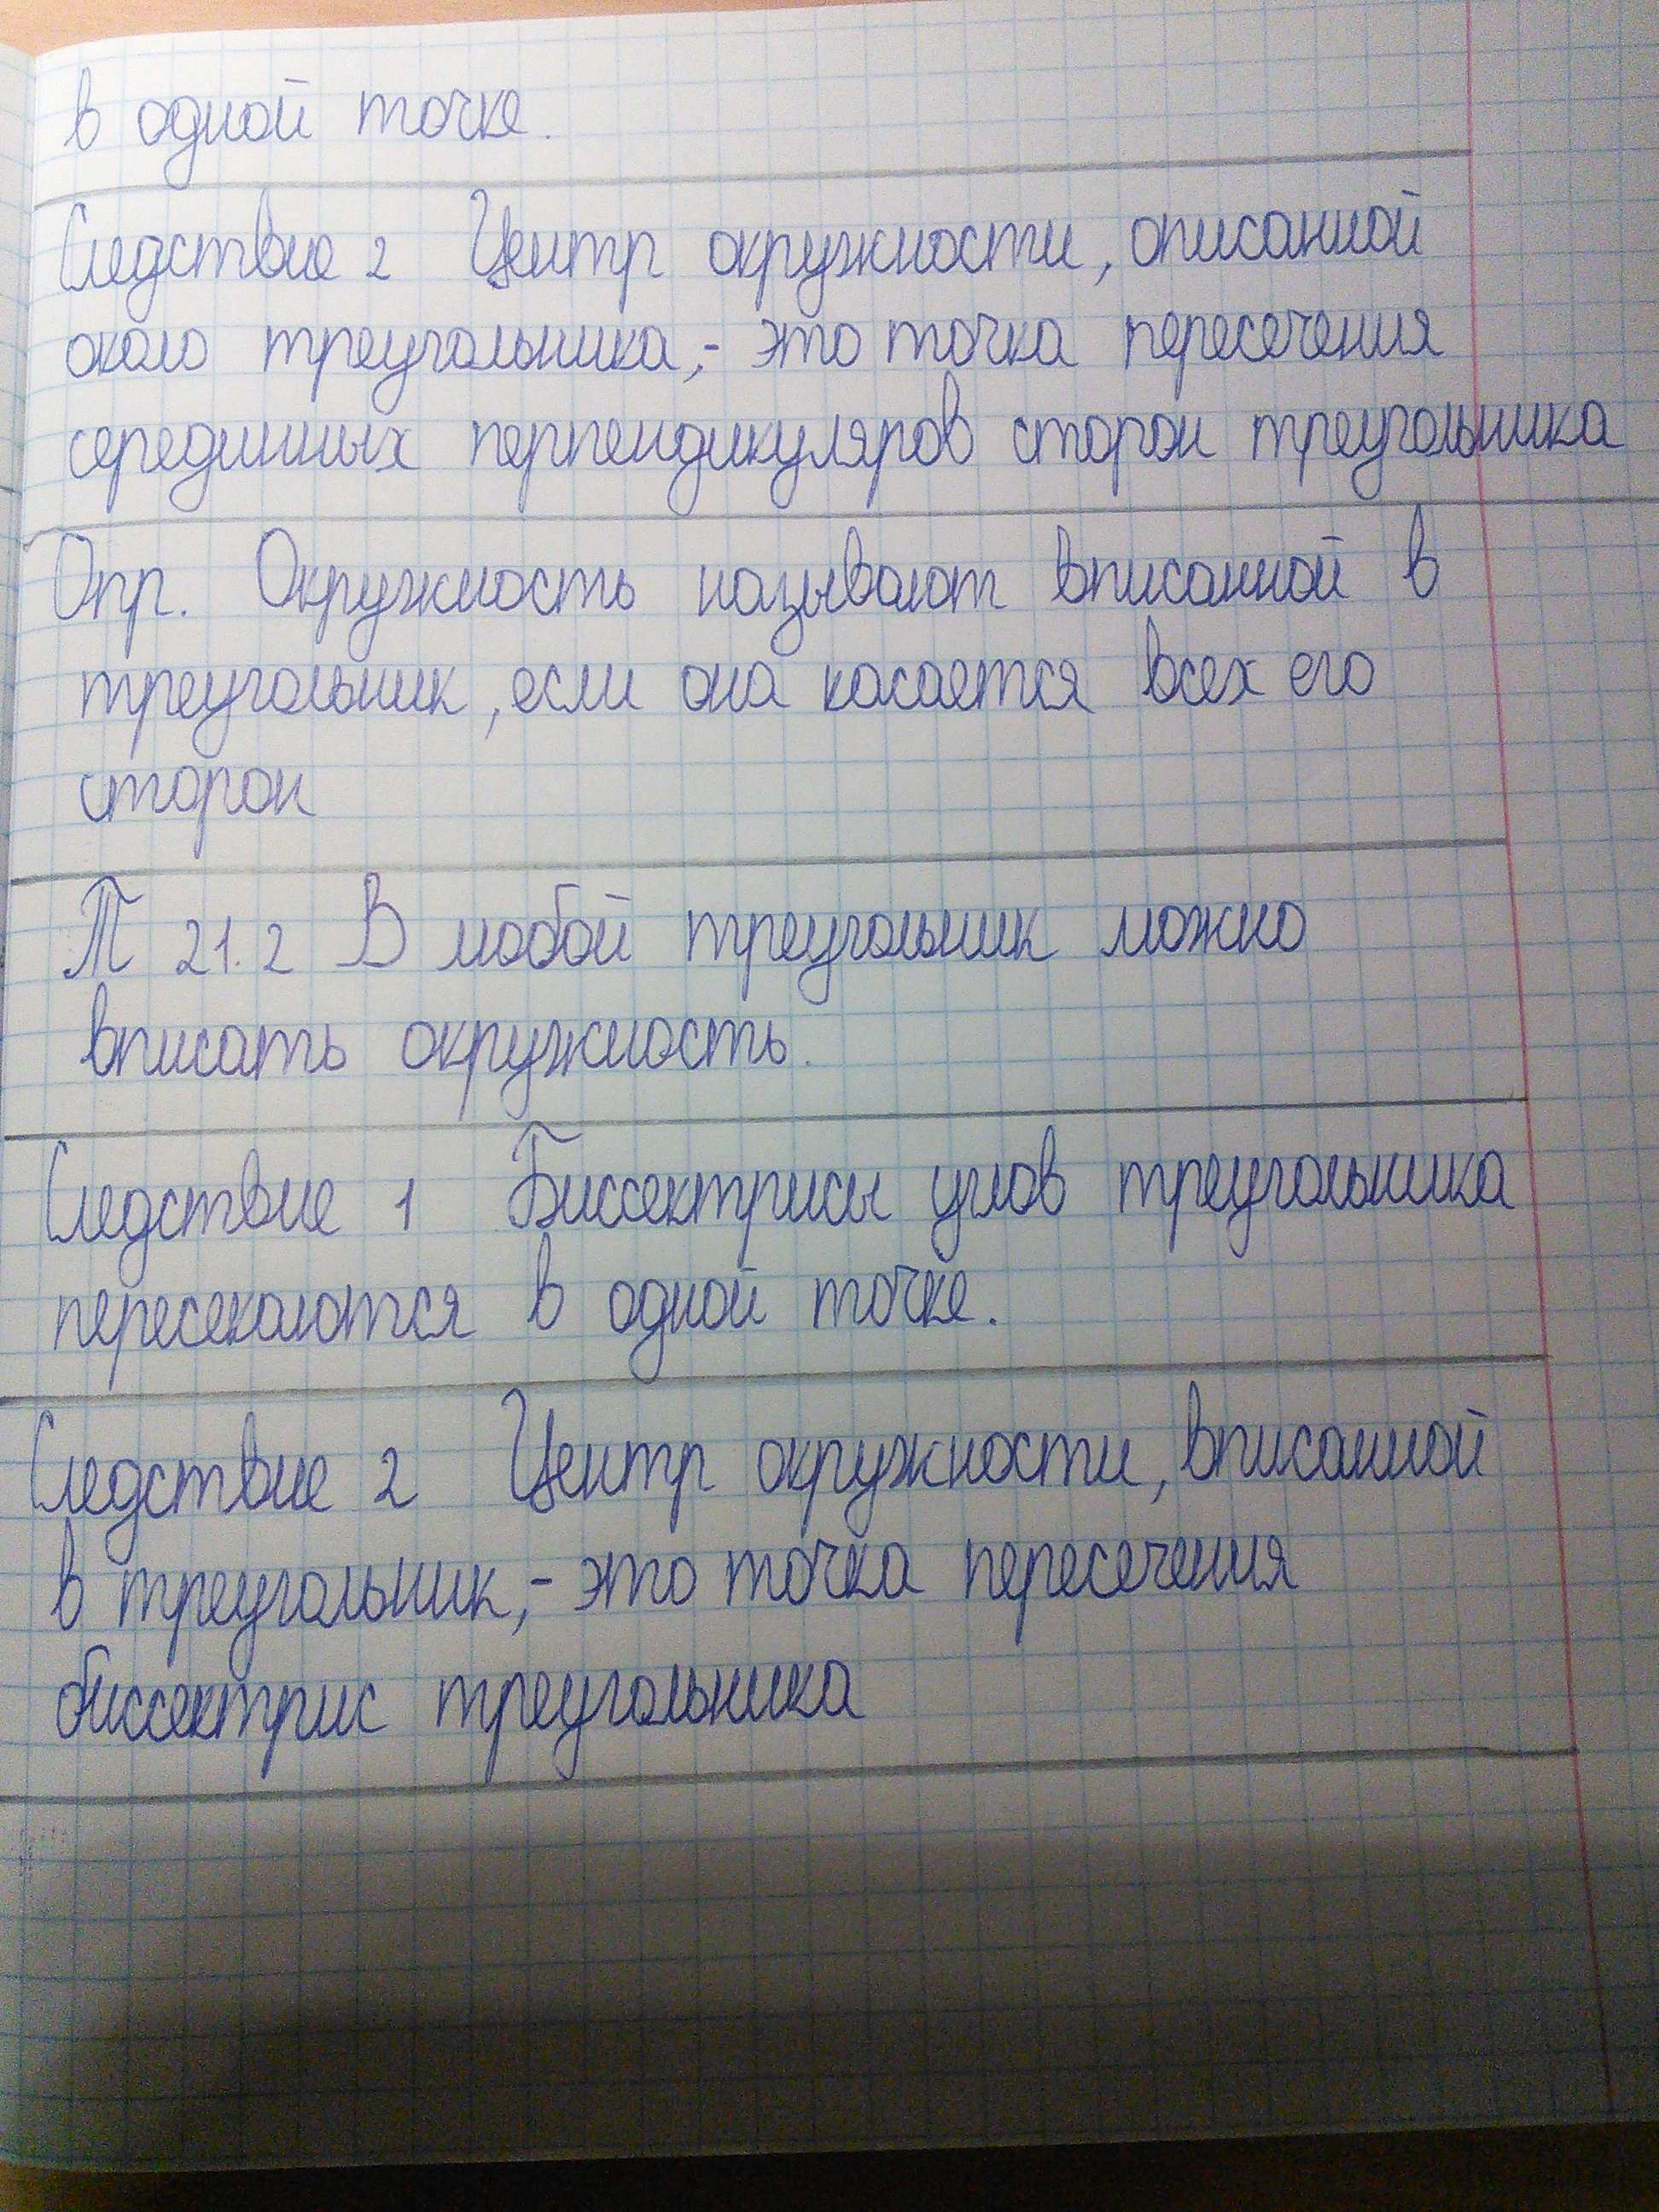 в одной точке.
Следствие 2 Центр окружности, описанной
около треугольника,- это точка пересечения
серединных перпендикуляров сторон треугольника
Опр. Окружность называют вписанной в
треугольник, если она касается всех его
сторон
Т 21.2 В любой треугольник можно
вписать окружность.
Следствие 1 Биссектрисы углов треугольника
пересекаются в одной точке.
Следствие 2 Центр окружности, вписанной
в треугольник,- это точка пересечения
биссектрис треугольника